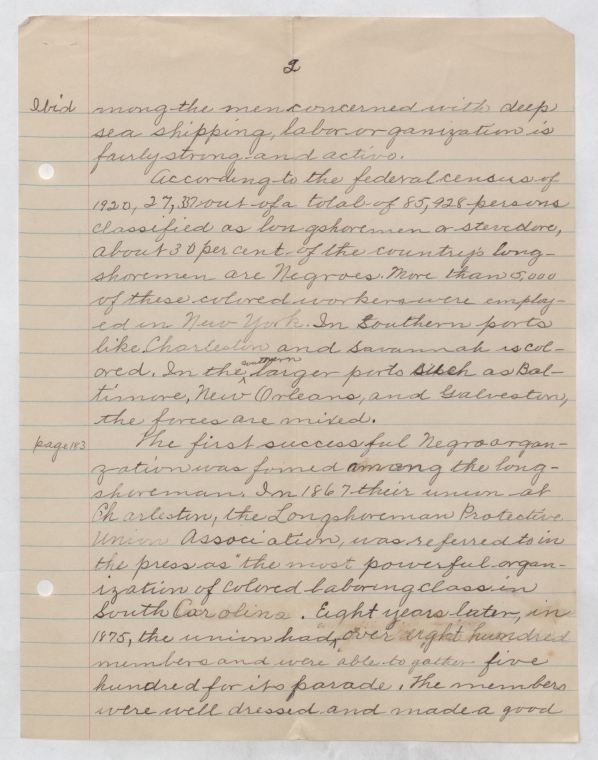 2
Ibid mong the men concerned with deep
sea shipping, labor organization is
fairly strong and active.
According to the federal census of
1920, 27,37 out of a total of 85,928 persons
classified as longshoremen or stevedore,
about 30 per cent of the country's long-
shoremen are Negroes. More than 5,000
of these colored workers were employ-
ed in New York. In Southern ports
like Charleston and Savannah is col-
ored. In the southern larger ports such as Bal-
timore, New Orleans, and Galveston,
the forces are mixed.
page 183 The first successful Negro organ-
zation was formed among the long-
shoreman. In 1867 their union at
Charleston, the Longshoreman Protective
Union Association, was referred to in
the press as "the most powerful organ-
ization of colored laboring class in
South Carolina. Eight years later, in
1875, the union had over eight hundred
members and were able to gather five
hundred for its parade. The members
were well dressed and made a good